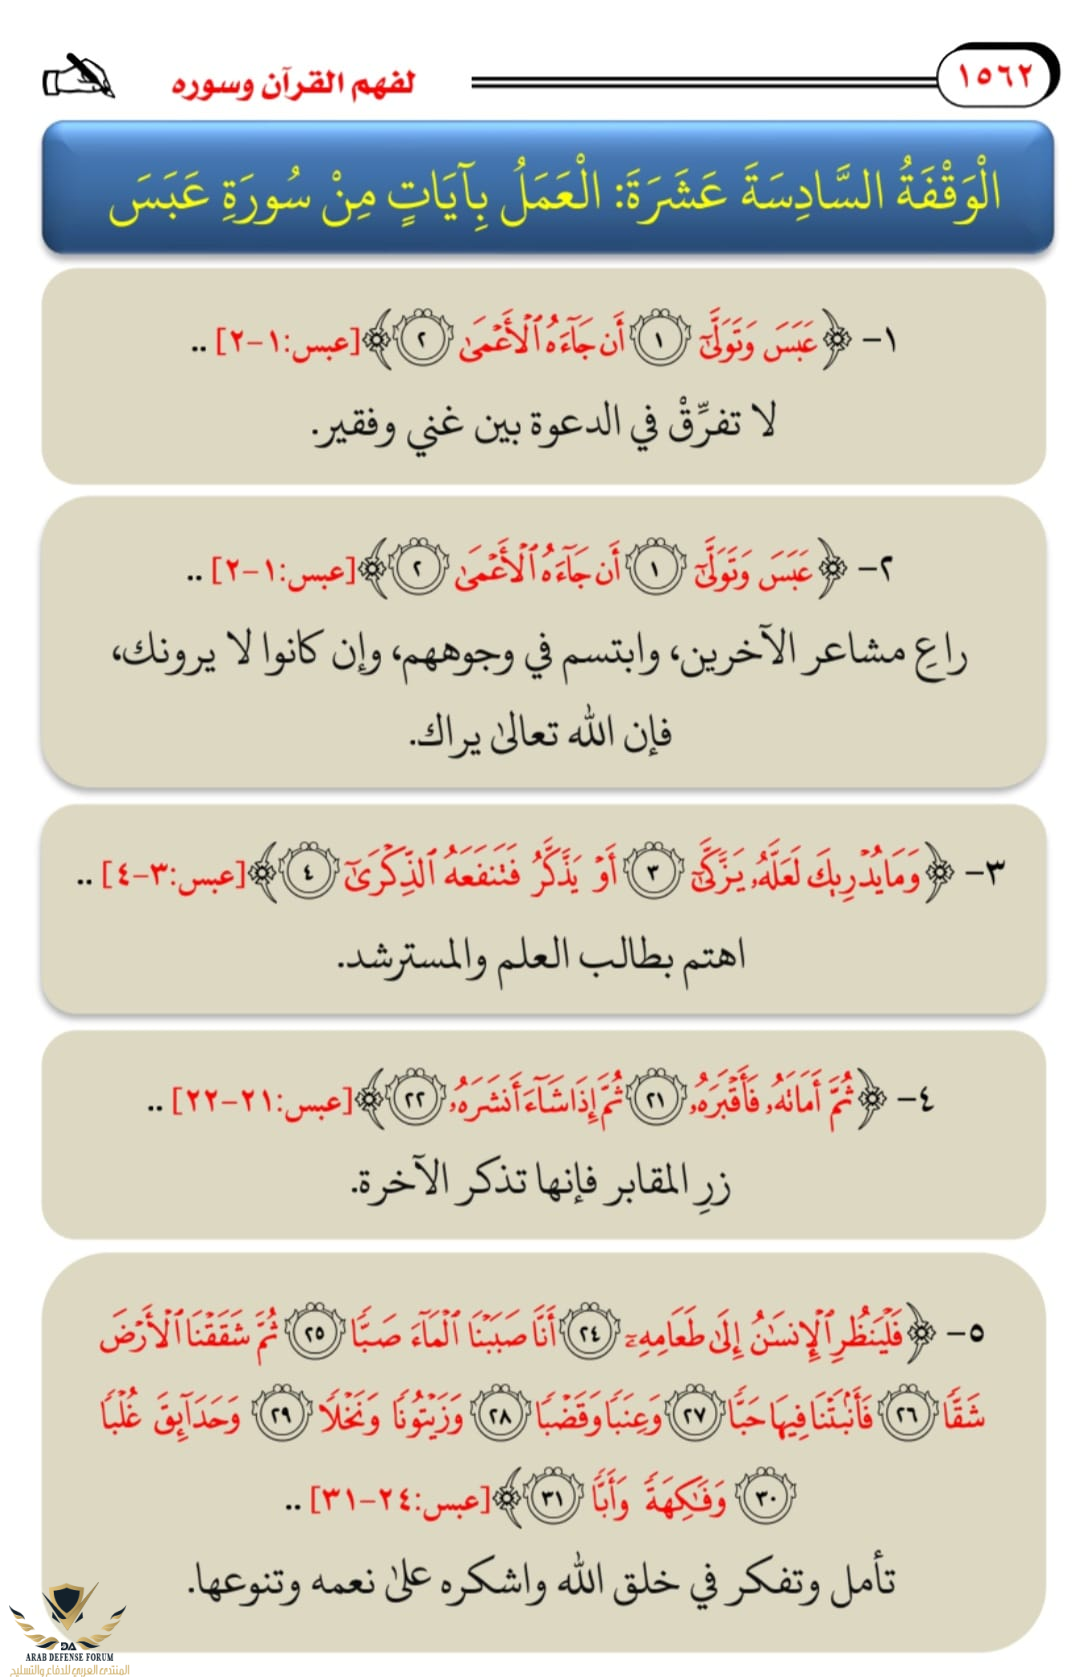 ١٥٦٢
لفهم القرآن وسوره
الْوَقْفَةُ السَّادِسَةَ عَشَرَةَ: الْعَمَلُ بِآيَاتٍ مِنْ سُورَةِ عَبَسَ
١- ﴿عَبَسَ وَتَوَلَّىٰٓ ١ أَن جَآءَهُ ٱلْأَعْمَىٰ ٢﴾ [عبس:١-٢] ..
لا تفرِّقْ في الدعوة بين غني وفقير.
٢- ﴿عَبَسَ وَتَوَلَّىٰٓ ١ أَن جَآءَهُ ٱلْأَعْمَىٰ ٢﴾ [عبس:١-٢] ..
راعِ مشاعر الآخرين، وابتسم في وجوههم، وإن كانوا لا يرونك،
فإن الله تعالىٰ يراك.
٣- ﴿وَمَا يُدْرِيكَ لَعَلَّهُۥ يَزَّكَّىٰٓ ٣ أَوْ يَذَّكَّرُ فَتَنفَعَهُ ٱلذِّكْرَىٰٓ ٤﴾ [عبس:٣-٤] ..
اهتم بطالب العلم والمسترشد.
٤- ﴿ثُمَّ أَمَاتَهُۥ فَأَقْبَرَهُۥ ٢١ ثُمَّ إِذَا شَآءَ أَنشَرَهُۥ ٢٢﴾ [عبس:٢١-٢٢] ..
زرِ المقابر فإنها تذكر الآخرة.
٥- ﴿فَلْيَنظُرِ ٱلْإِنسَٰنُ إِلَىٰ طَعَامِهِۦٓ ٢٤ أَنَّا صَبَبْنَا ٱلْمَآءَ صَبًّا ٢٥ ثُمَّ شَقَقْنَا ٱلْأَرْضَ
شَقًّا ٢٦ فَأَنۢبَتْنَا فِيهَا حَبًّا ٢٧ وَعِنَبًا وَقَضْبًا ٢٨ وَزَيْتُونًا وَنَخْلًا ٢٩ وَحَدَآئِقَ غُلْبًا
٣٠ وَفَٰكِهَةً وَأَبًّا ٣١﴾ [عبس:٢٤-٣١] ..
تأمل وتفكر في خلق الله واشكره علىٰ نعمه وتنوعها.
DA
ARAB DEFENSE FORUM
المنتدى العربي للدفاع والتسليح